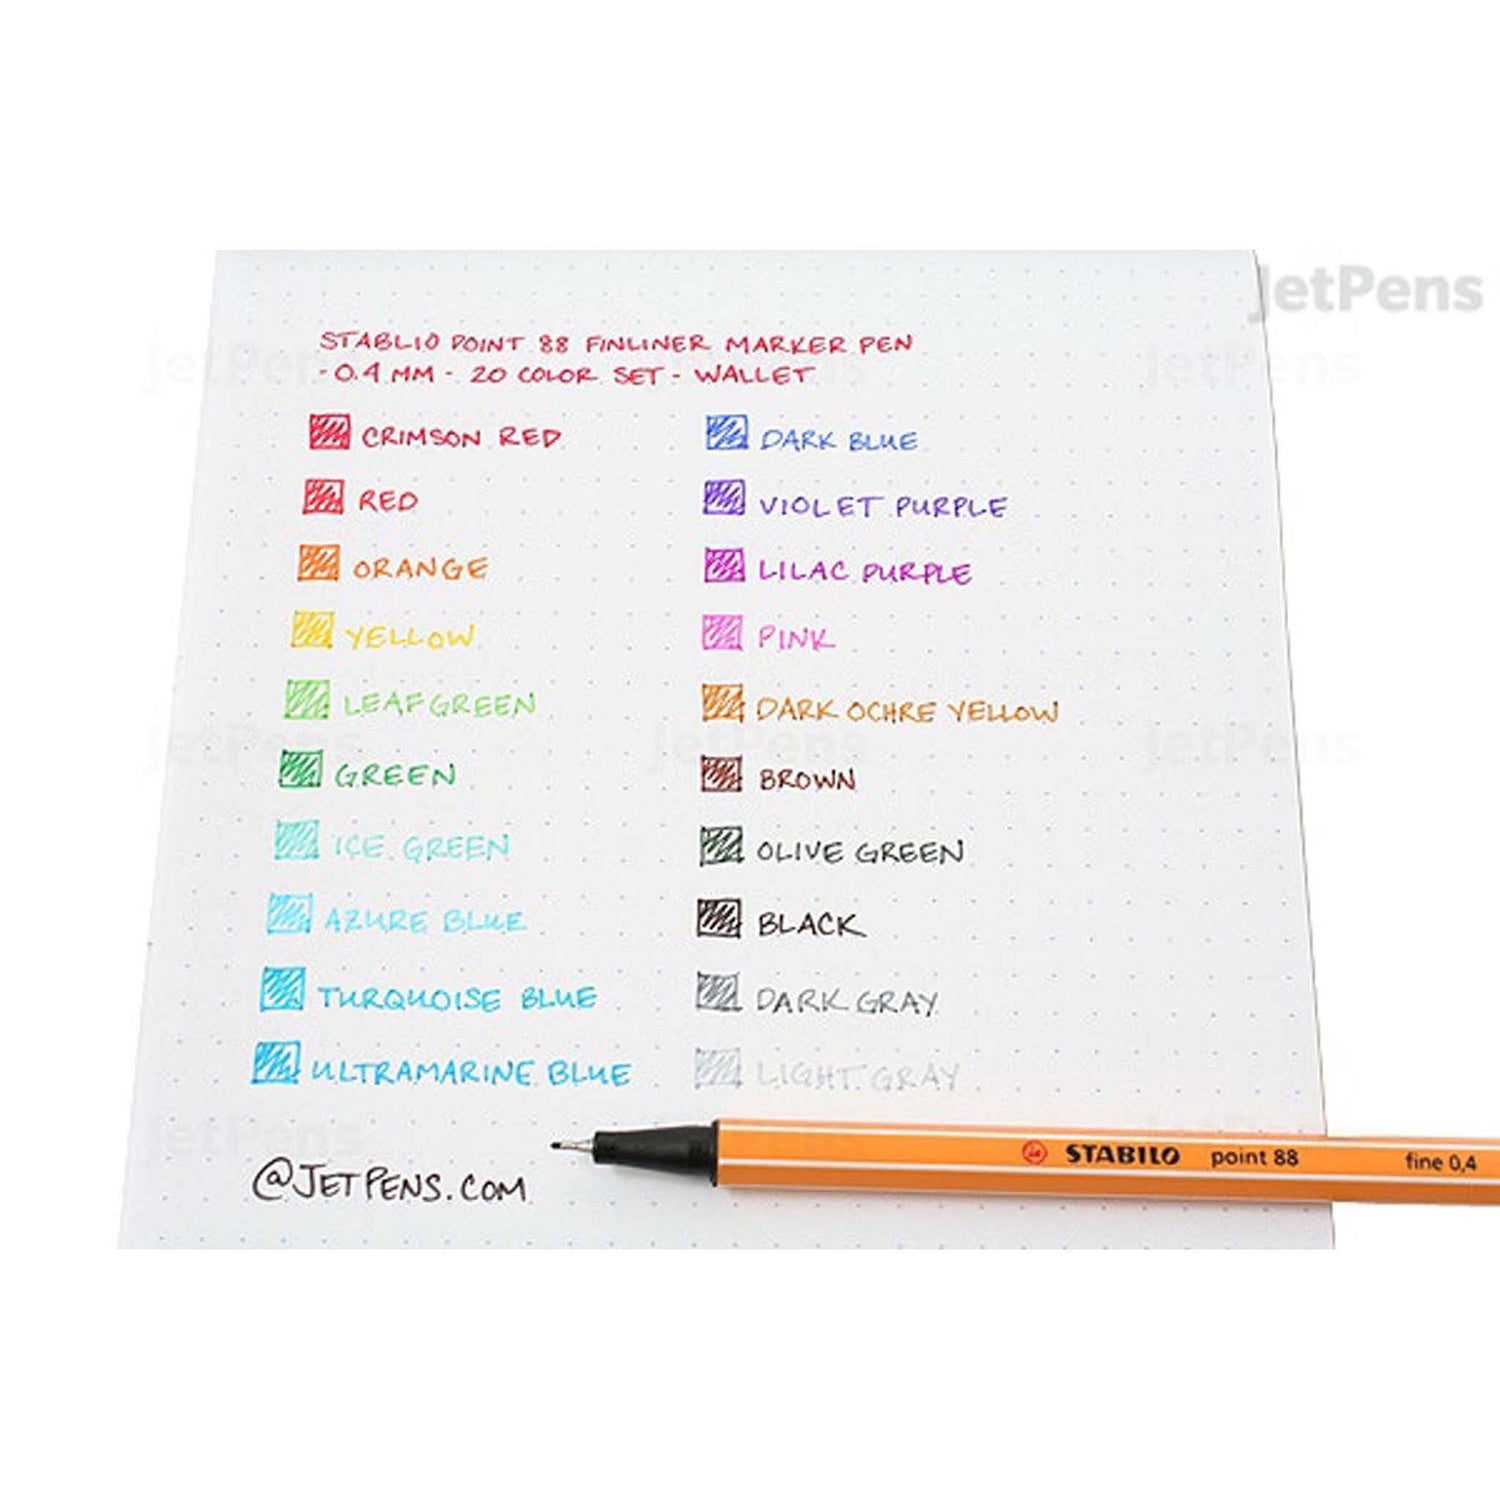 JetPens
STABLIO POINT 88 FINLINER MARKER PEN
- 0.4 MM - 20 COLOR SET - WALLET
CRIMSON RED
RED
ORANGE
YELLOW
LEAF GREEN
GREEN
ICE GREEN
AZURE BLUE
TURQUOISE BLUE
ULTRAMARINE BLUE
DARK BLUE
VIOLET PURPLE
LILAC PURPLE
PINK
DARK OCHRE YELLOW
BROWN
OLIVE GREEN
BLACK
DARK GRAY
LIGHT GRAY
@JETPENS.COM
STABILO point 88 fine 0,4
JetPens
JetPens
JetPens
JetPens
JetPens
JetPens